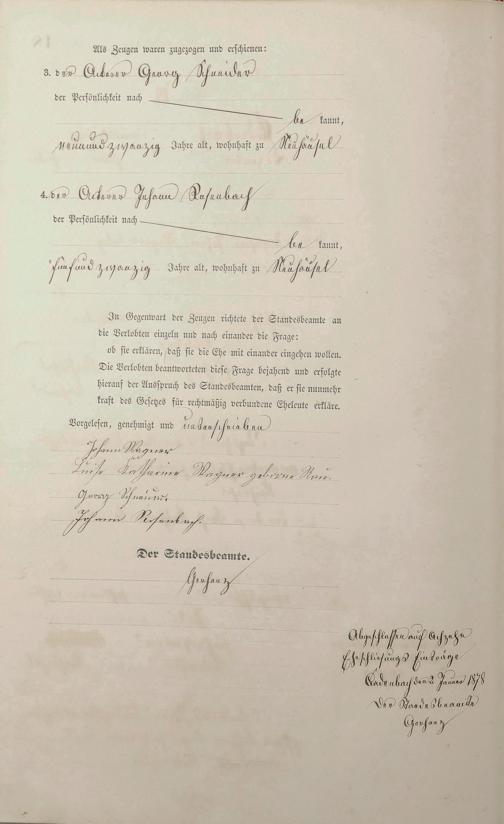 Als Zeugen waren zugezogen und erschienen:
3. der Ackerer Georg Schneider
der Persönlichkeit nach
be kannt,
neunundzwanzig Jahre alt, wohnhaft zu Neuhäusel
4. der Ackerer Johann Rosenbach
der Persönlichkeit nach
be kannt,
fünfundzwanzig Jahre alt, wohnhaft zu Neuhäusel
In Gegenwart der Zeugen richtete der Standesbeamte an
die Verlobten einzeln und nach einander die Frage:
ob sie erklären, daß sie die Ehe mit einander eingehen wollen.
Die Verlobten beantworteten diese Frage bejahend und erfolgte
hierauf der Ausspruch des Standesbeamten, daß er sie nunmehr
kraft des Gesetzes für rechtmäßig verbundene Eheleute erkläre.
Vorgelesen, genehmigt und unterschrieben
Johann Wagner
Luise Katharine Wagner geborne
Georg Schneider.
Johann Rosenbach.
Der Standesbeamte.
Gerharz
Abgeschlossen auf Achzehn
Eheschließungs Einträge
Cadenbach den 2 Januar 1878
Der Standesbeamte
Gerharz